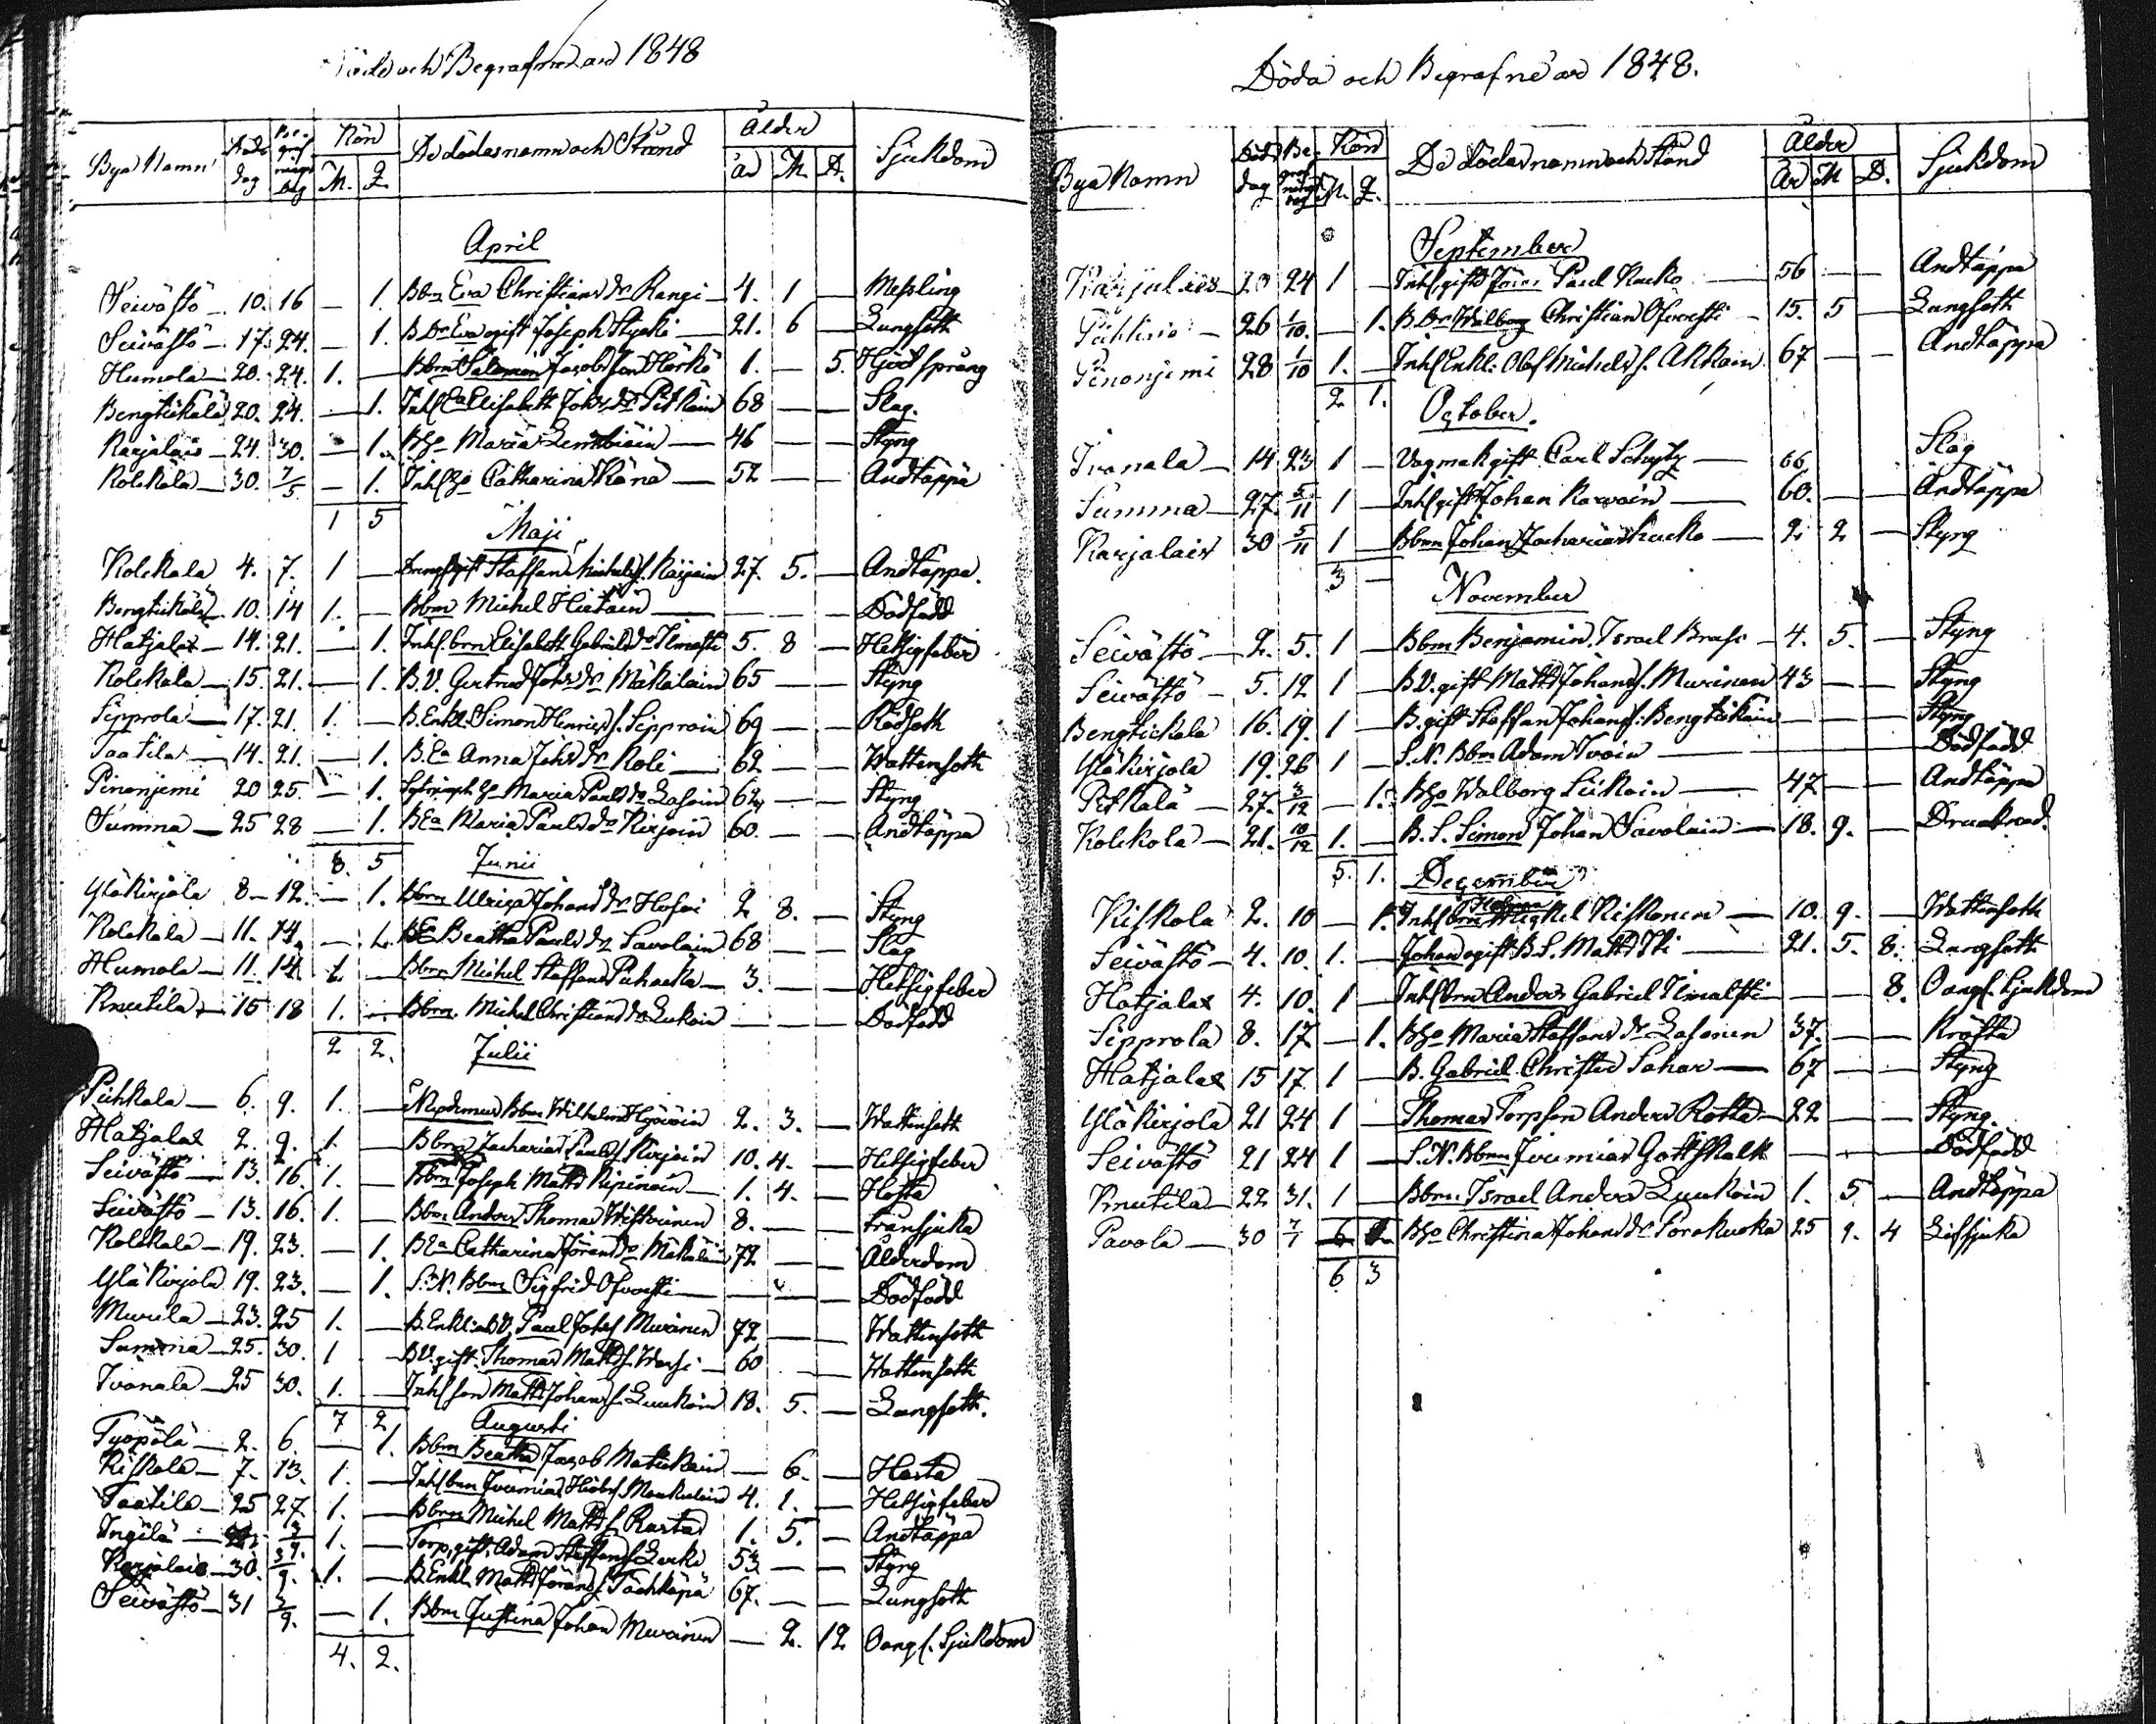 Döde och Begrafne år 1848
Bya Namn Döds dag Begrafnings dag Kön M. Q. De dödas namn och Stånd Ålder År M. D. Sjukdom
April
Seivästö 10. 16 — 1. Bbrn Eva Christians dr Rangi 4. 1 — Messling
Seivästö 17. 24. — 1. B.Dr Eva ogift Joseph Styski 21. 6 — Lungsoth
Humola 20. 24. 1. — Bbrn Salomon Jacobsson Härkö 1. — 5. Hjertsprång
Bengtikälä 20. 24. — 1. Inhs Ea Elisabeth Johs dr Pitkäin 68 — — Slag.
Karjalais 24. 30. — 1. BHo Maria Lembiäin 46 — — Styng
Kolckala 30. 7/5 — 1. Inhs Ho Catharina Känä 52 — — Andtäppa
1 5
Maji
Kolckala 4. 7. 1 — gift Staffan Michels s. Karjain 27. 5. — Andtäppa.
Bengtikälä 10. 14 1. — Bbrn Michel Hietain — — — Dödfödd
Hatjalax 14. 21. — 1. Inhs. brn Elisabeth Gabriels dr Ilmasti 5. 8 — Hetsigfeber
Kolckala 15. 21. — 1. B.V. Gertrud Johs dr Mäkäläin 65 — — Styng
Sipprola 17. 21. 1. — B. Enkl. Simon Henrics s. Sipproin 69 — — Rödsoth
Taatila 14. 21. — 1. B. Ea Anna Johs dr Koli 62 — — Wattensoth
Pinonjemi 20 25. — 1. Ho Maria Pauls dr Lasoin 62 — — Styng
Summa 25 28 — 1. BEa Maria Pauls dr Kirjoin 60. — — Andtäppa
8. 5
Junii
Yläkirjola 8 12. — 1. Bbrn Ulrica Johans dr Hosoi 2 8. — Styng
Kolckala 11. 14. — 1. BEa Beatha Pauls dr Savolain 68 — — Slag
Humola 11. 14. 1. — Bbrn Michel Staffans Puhacka 3. — — Hetsigfeber
Knutila 15 18 1. — Bbrn. Michel Christians Lukoin — — — Dödfödd
2 2.
Julii
Pihkala 6. 9. 1. — Bbrn Wilhelm 2. 3. — Wattensoth
Hatjalax 2. 9. 1. — Bbrn Zacharias Pauls s. Kirjoin 10. 4. — Hetsigfeber
Seivästö 13. 16. 1. — Bbrn Joseph Matts Ripinoin 1. 4. — Hosta
Seivästö 13. 16. 1. — Bbrn Anders Thomas Wistoinen 8. — — Fransjuka
Kolckala 19. 23. — 1. BEa Catharina Jörans dr Mäkäläin 72 — — Ålderdom
Yläkirjola 19. 23. — 1. S.N. Bbrn Sigfrid Ofversti — — — Dödfödd
Murila 23. 25 1. — B. Enkl. Paul Johs s. Muroinen 72 — — Wattensoth
Summa 25. 30. 1 — BV. gift. Thomas Matts s. 60 — — Wattensoth
Ivanala 25 30. 1. — Inhs son Matts Johans s. Luukoin 18. 5. — Lungsoth.
7 2
Augusti
Työpölä 2. 6. — 1. Bbrn Beatha Jacob Matickain — 6. — Hosta
Kiskola 7. 13. 1. — Inhs brn Jeremias Mankoloin 4. 1. — Hetsigfeber
Taatila 25 27 1. — Bbrn Michel Matts s. Rasta 1. 5. — Andtäppa
Ingilä 3/9. 1. — Torp. gift. Adam Staffans s. Lerki 53 — — Styng
Karjalais 30. 3/9. 1. — B. Enkl. Matts Jörans s. Tächkäpä 67. — — Lungsoth
Seivästö 31 3/9. — 1. Bbrn Justina Johan Muroinen — 2. 12 Oangf. Sjukdom
4. 2.
Döda och Begrafne år 1848.
Bya Namn Döds dag Begrafnings dag Kön M. Q. De dödas namn och Stånd Ålder År M D. Sjukdom
September
Karjalais 20 24 1 — Inhs gift Jöran Paul Kucko 56 — — Andtäppa
Pihkala 26 1/10. — 1. B. Dr Walborg Christian Ofversti 15. 5 — Lungsoth
Pinonjemi 28 1/10 1. — Inhs Enkl: Olof Michels s. Akkain 67 — — Andtäppa
2 1.
October.
Ivanala 14 23 1 — Vagmak gift Carl Schytz 66 Slag
Summa 27. 5/11 1 — Inhs gift Johan Karvoin 60. — — Andtäppa
Karjalais 30 5/11 1 — Bbrn Johan Zacharias Kucko 2 2 — Styng
3 —
November
Seivästö 2. 5. 1 — Bbrn Benjamin Israel Brusi 4. 5. — Styng
Seivästö 5. 12 1 — B.V. gift Matts Johans s. Murinen 43 — — Styng
Bengtickala 16. 19. 1 — B. gift Staffan Johans s. Bengtikäin — — — Styng
Yläkirjola 19. 26 1 — S.N. Bbrn Adam Ivoin — — — Dödfödd
Pitkälä 27. 3/12 — 1. BHo Walborg Liikain 47 — — Andtäppa
Kolckola 21. 10/12 1. — B. S. Simon Johan Savolain 18. 9. — Drucknad.
5. 1.
December
Kiskola 2. 10 — 1. Inhs brn Helena Michel Kiskonen 10. 9. — Wattensoth
Seivästö 4. 10. 1. — Johan ogift B.S. Matts Iti 21. 5. 8. Lungsoth
Hatjalax 4. 10. 1 — Inhs brn Anders Gabriel Ilmalsti — — 8. Oangf. Sjukdom
Sipprola 8. 17. — 1. BHo Maria Staffans dr Lasonen 37. — — Kräfta
Hatjalax 15 17 1 — B. Gabriel Christer Sahar 67 — — Styng
Yläkirjola 21 24 1 — Thomas Torpson Anders Rotta 22 — — Styng.
Seivästö 21 24 1 — S.N. Bbrn Jeremias Gottskalk — — — Dödfödd
Knutila 22 31. 1 — Bbrn Israel Anders Luukoin 1. 5. — Andtäppa
Pavola 30 7/1 BHo Christina Johans dr Porokuoka 25 9. 4 Lifsjuka
6 3